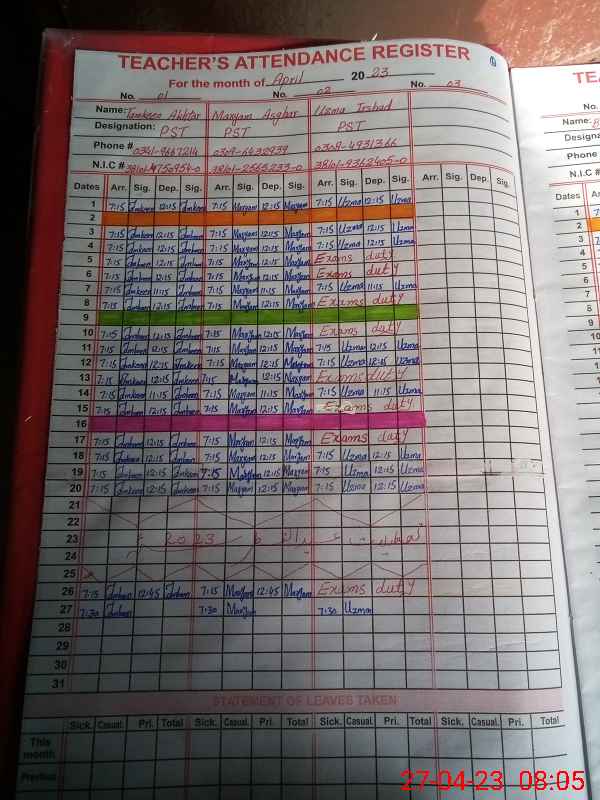 TEACHER'S ATTENDANCE REGISTER
For the month of April 2023
No. 01 No. 02 No. 03
Name: Tamkeen Akhtar Maryam Asghar Uzma Irshad
Designation: PST PST PST
Phone # 0341-9667214 0309-6430939 0309-4931366
N.I.C # 38101-4750954-0 38101-2565233-0 38101-9362405-0
Dates Arr. Sig. Dep. Sig. Arr. Sig. Dep. Sig. Arr. Sig. Dep. Sig. Arr. Sig. Dep. Sig.
1 7:15 Tmkeen 12:15 Tmkeen 7:15 Maryam 12:15 Maryam 7:15 Uzma 12:15 Uzma
2
3 7:15 Tmkeen 12:15 Tmkeen 7:15 Maryam 12:15 Maryam 7:15 Uzma 12:15 Uzma
4 7:15 Tmkeen 12:15 Tmkeen 7:15 Maryam 12:15 Maryam 7:15 Uzma 12:15 Uzma
5 7:15 Tmkeen 12:15 Tmkeen 7:15 Maryam 12:15 Maryam Exams duty
6 7:15 Tmkeen 12:15 Tmkeen 7:15 Maryam 12:15 Maryam Exams duty
7 7:15 Tmkeen 11:15 Tmkeen 7:15 Maryam 11:15 Maryam 7:15 Uzma 11:15 Uzma
8 7:15 Tmkeen 12:15 Tmkeen 7:15 Maryam 12:15 Maryam Exams duty
9
10 7:15 Tmkeen 12:15 Tmkeen 7:15 Maryam 12:15 Maryam Exams duty
11 7:15 Tmkeen 12:15 Tmkeen 7:15 Maryam 12:15 Maryam 7:15 Uzma 12:15 Uzma
12 7:15 Tmkeen 12:15 Tmkeen 7:15 Maryam 12:15 Maryam 7:15 Uzma 12:15 Uzma
13 7:15 Tmkeen 12:15 Tmkeen 7:15 Maryam 12:15 Maryam Exams duty
14 7:15 Tmkeen 11:15 Tmkeen 7:15 Maryam 11:15 Maryam 7:15 Uzma 11:15 Uzma
15 7:15 Tmkeen 12:15 Tmkeen 7:15 Maryam 12:15 Maryam Exams duty
16
17 7:15 Tmkeen 12:15 Tmkeen 7:15 Maryam 12:15 Maryam Exams duty
18 7:15 Tmkeen 12:15 Tmkeen 7:15 Maryam 12:15 Maryam 7:15 Uzma 12:15 Uzma
19 7:15 Tmkeen 12:15 Tmkeen 7:15 Maryam 12:15 Maryam 7:15 Uzma 12:15 Uzma
20 7:15 Tmkeen 12:15 Tmkeen 7:15 Maryam 12:15 Maryam 7:15 Uzma 12:15 Uzma
21
22
23 2023
24
25
26 7:15 Tmkeen 12:45 Tmkeen 7:15 Maryam 12:45 Maryam Exams duty
27 7:30 Tmkeen 7:30 Maryam 7:30 Uzma
28
29
30
31
STATEMENT OF LEAVES TAKEN
Sick. Casual. Pri. Total Sick. Casual. Pri. Total Sick. Casual. Pri. Total Sick. Casual. Pri. Total
This month
Previous
27-04-23 08:05